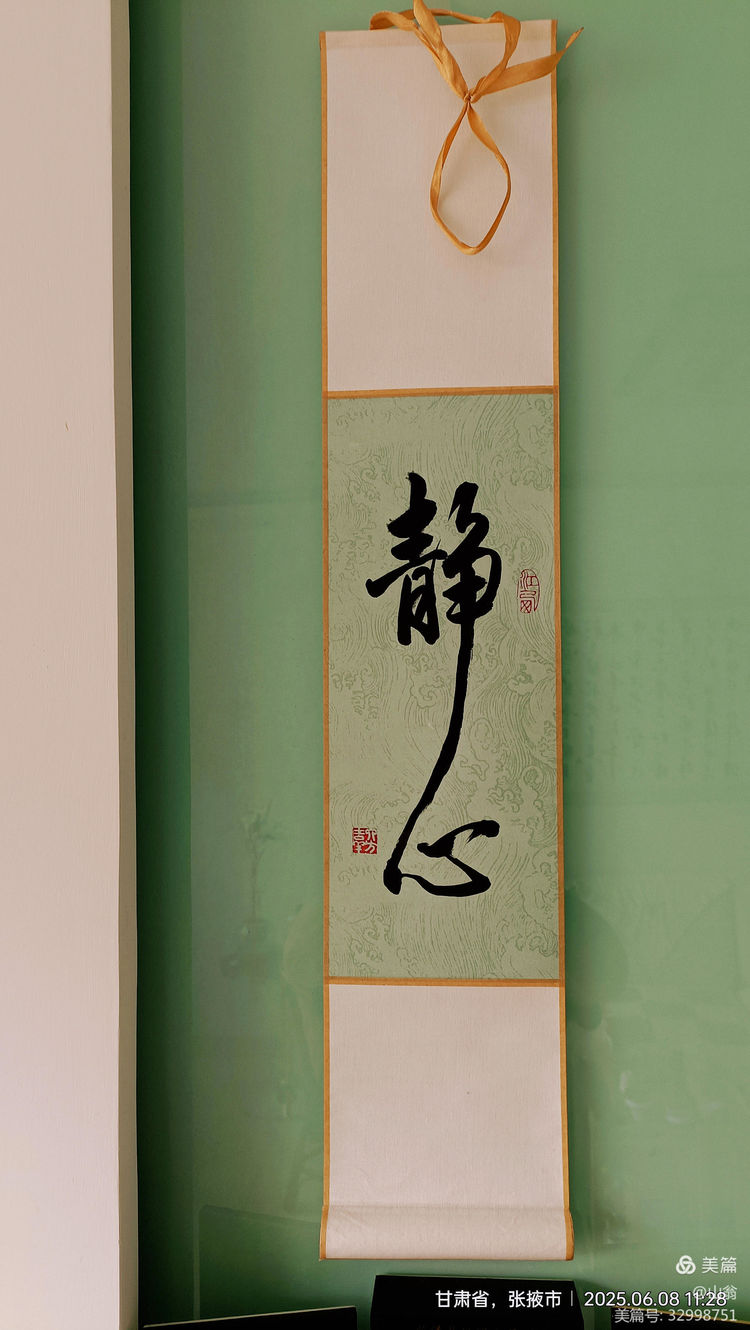 静心
美篇
@山翁
甘肃省，张掖市 | 2025.06.08 11:28
美篇号: 32998751